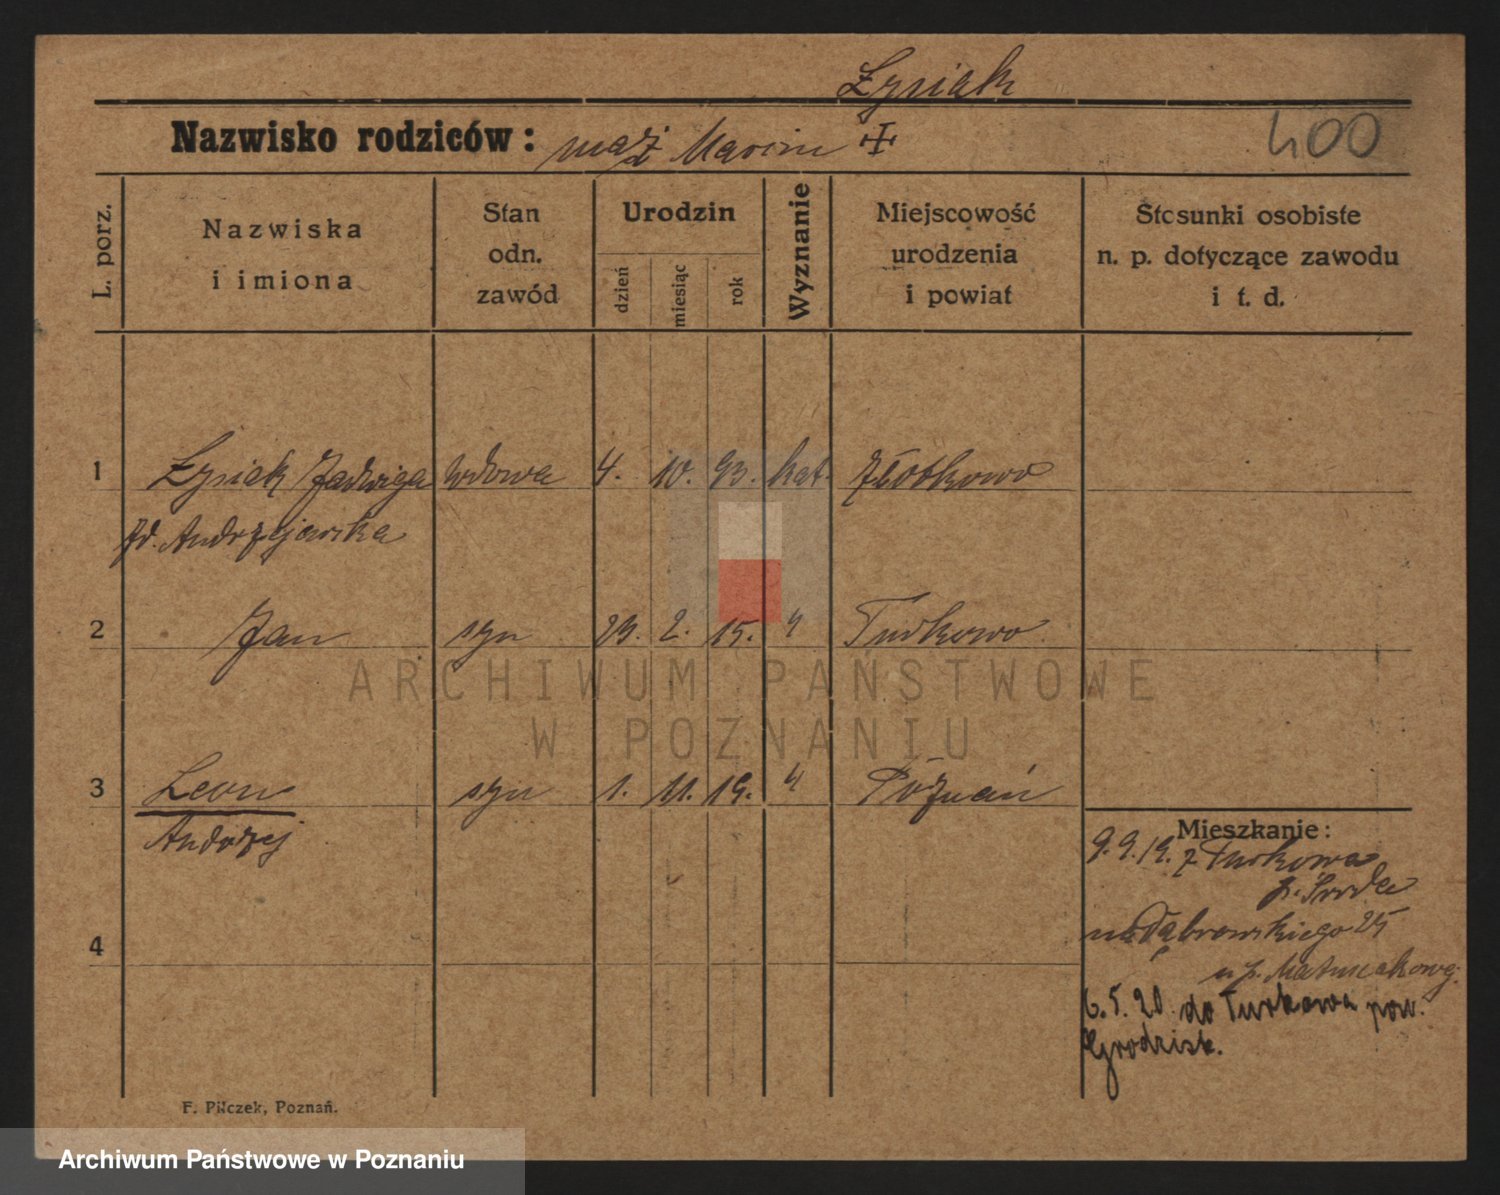 Łysiak
Nazwisko rodziców: mąż Marcin ✠
400
L. porz.
Nazwiska
i imiona
Stan
odn.
zawód
Urodzin
dzień
miesiąc
rok
Wyznanie
Miejscowość
urodzenia
i powiat
Stosunki osobiste
n. p. dotyczące zawodu
i t. d.
1 Łysiak Jadwiga wdowa 4. 10. 93. kat. Złotkowo
zd. Andrzejewska
2 Jan syn 23. 2. 15. " Turkowo
3 Leon syn 1. 11. 19. " Poznań
Andrzej
4
Mieszkanie:
9. 9. 19. z Turkowa
p. Środa
na Dąbrowskiego 25
u p. Matuszakowej.
6. 5. 20. do Turkowa pow.
Grodzisk.
F. Pilczek, Poznań.
ARCHIWUM PAŃSTWOWE
W POZNANIU
Archiwum Państwowe w Poznaniu